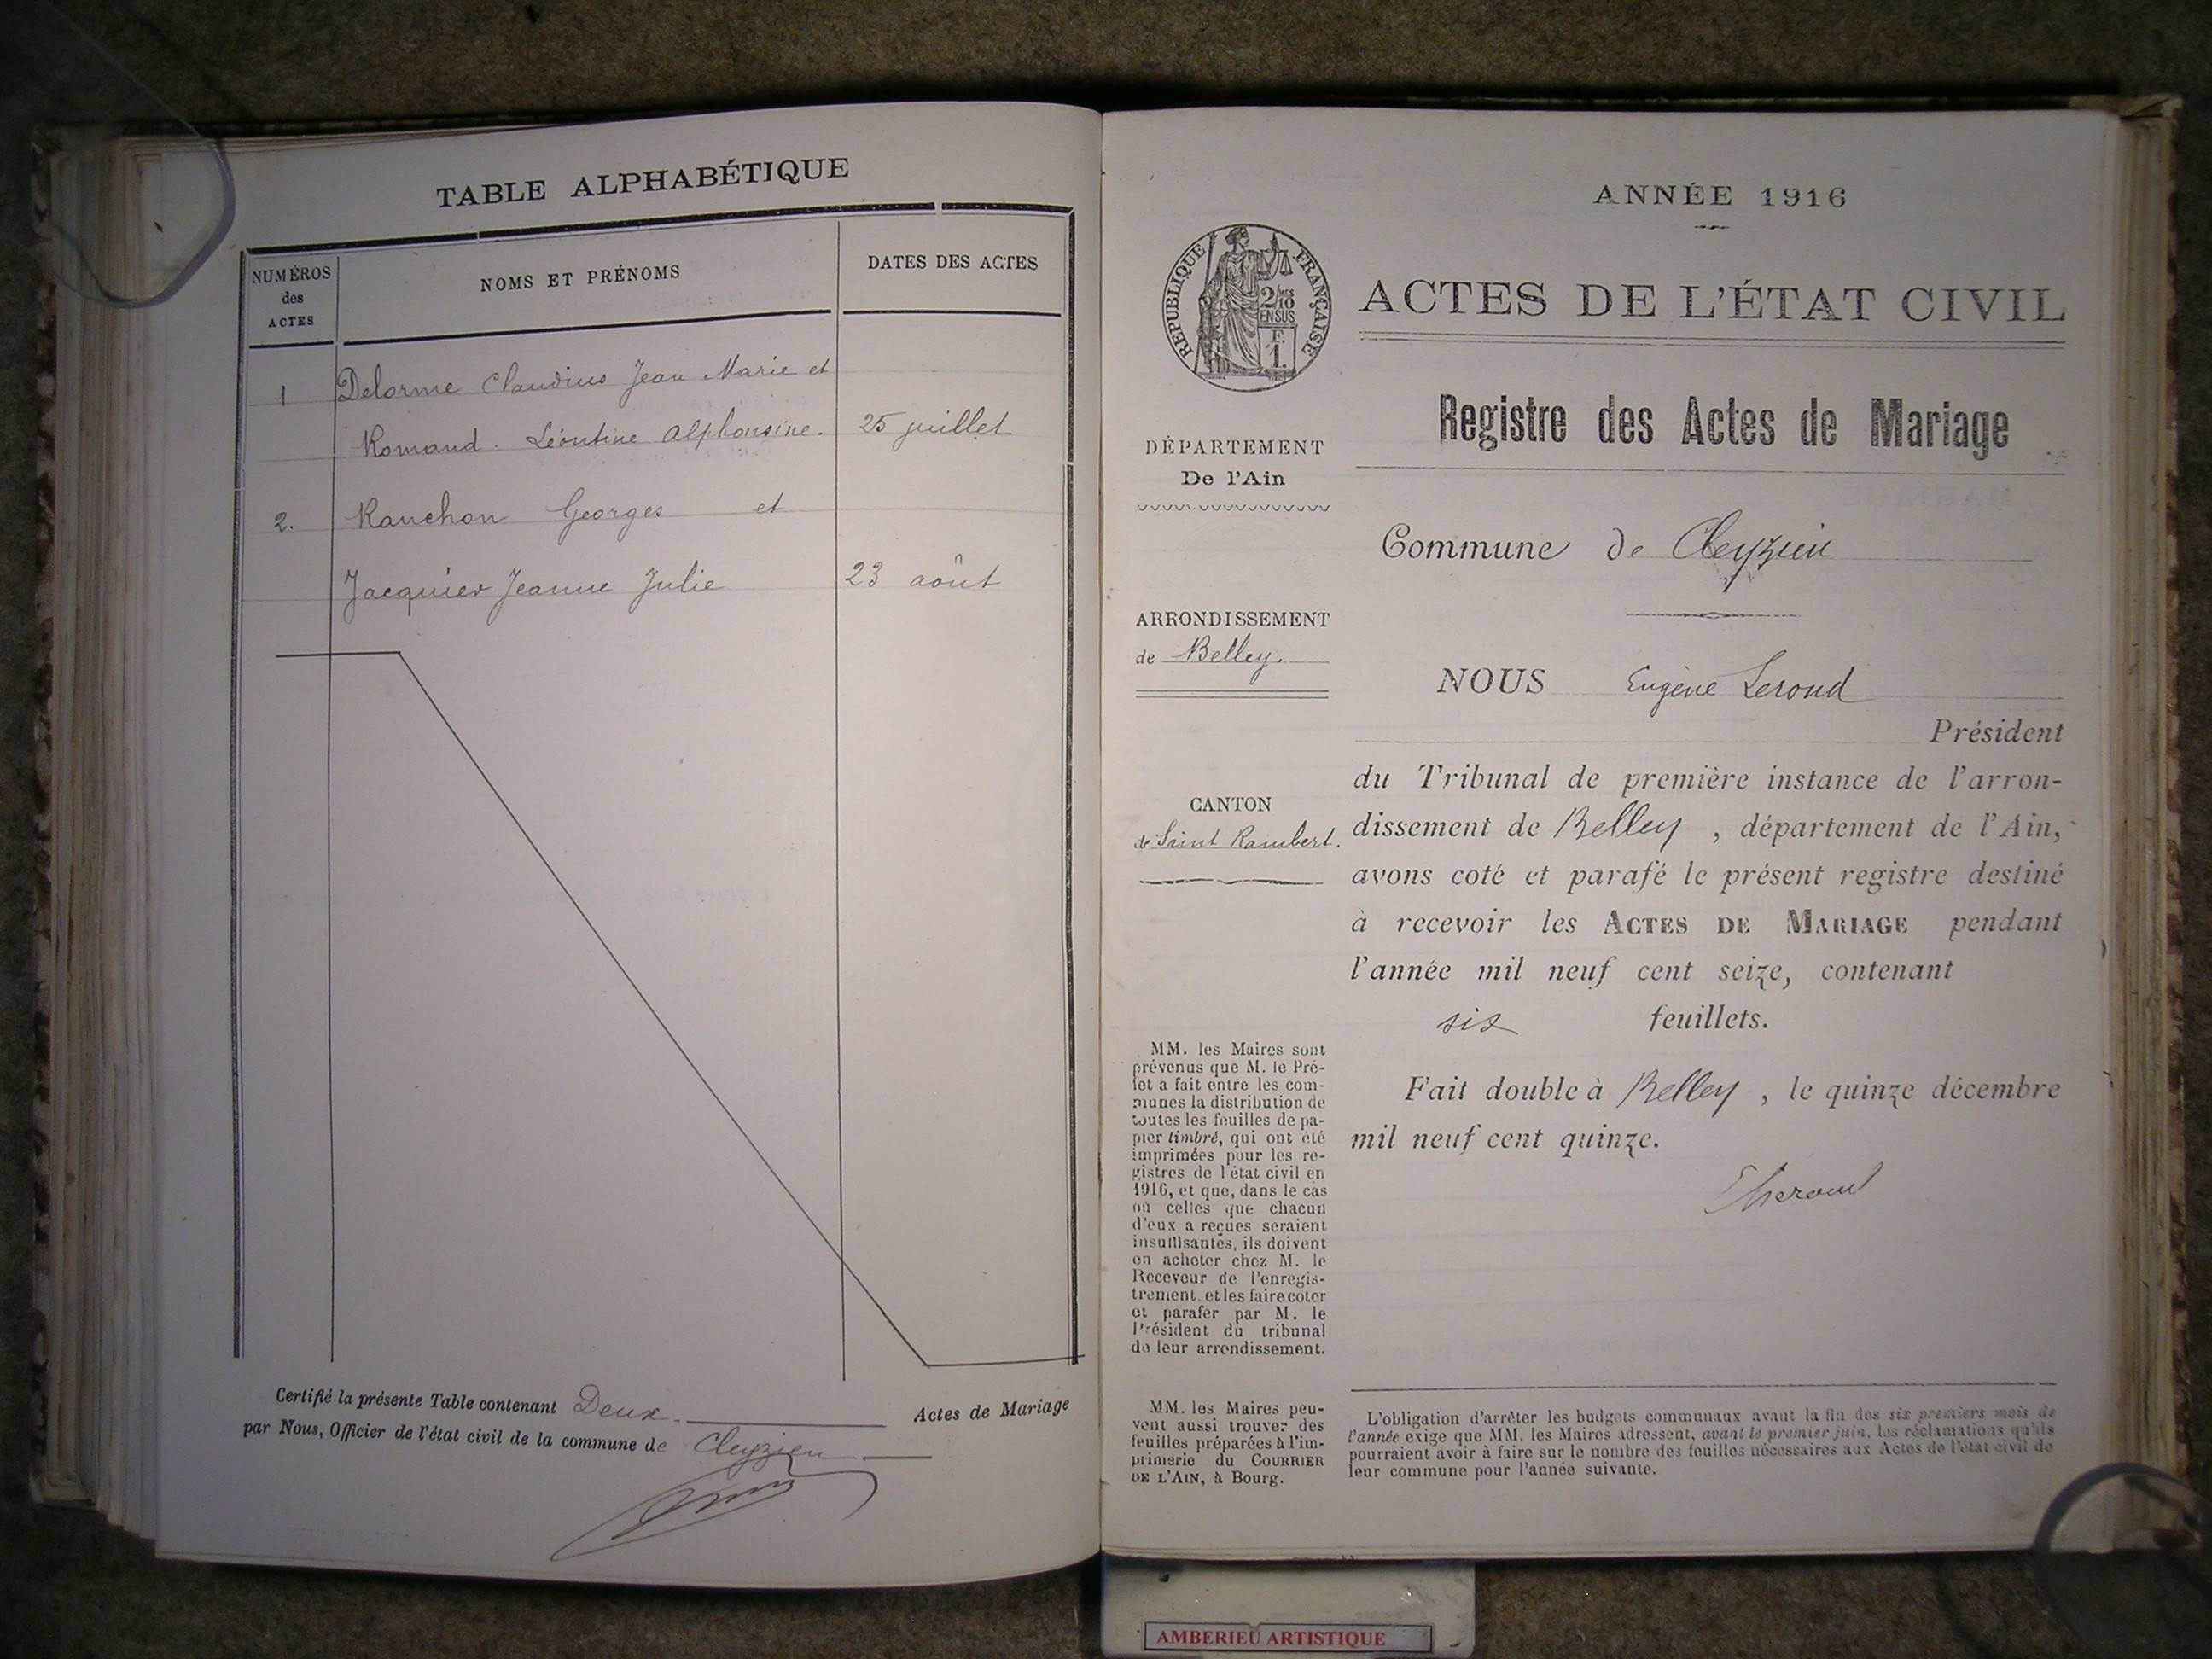 TABLE ALPHABÉTIQUE
NUMÉROS
des
ACTES
NOMS ET PRÉNOMS
DATES DES ACTES
1 Delorme Claudius Jean Marie et
Romand. Léontine Alphonsine. 25 juillet
2. Ranchon Georges et
Jacquier Jeanne Julie 23 août
Certifié la présente Table contenant Deux Actes de Mariage
par Nous, Officier de l'état civil de la commune de Cleyzieu
ANNÉE 1916
RÉPUBLIQUE FRANÇAISE
2/10MES
EN SUS
F.
1.
ACTES DE L'ÉTAT CIVIL
Registre des Actes de Mariage
DÉPARTEMENT
De l'Ain
Commune de Cleyzieu
ARRONDISSEMENT
de Belley.
CANTON
de Saint Rambert.
NOUS Eugène Leroud
Président
du Tribunal de première instance de l'arron-
dissement de Belley, département de l'Ain,
avons coté et parafé le présent registre destiné
à recevoir les ACTES DE MARIAGE pendant
l'année mil neuf cent seize, contenant
six feuillets.
Fait double à Belley, le quinze décembre
mil neuf cent quinze.
MM. les Maires sont
prévenus que M. le Pré-
fet a fait entre les com-
munes la distribution de
toutes les feuilles de pa-
pier timbré, qui ont été
imprimées pour les re-
gistres de l'état civil en
1916, et que, dans le cas
où celles que chacun
d'eux a reçues seraient
insuffisantes, ils doivent
en acheter chez M. le
Receveur de l'enregis-
trement, et les faire coter
et parafer par M. le
Président du tribunal
de leur arrondissement.
MM. les Maires peu-
vent aussi trouver des
feuilles préparées à l'im-
primerie du COURRIER
DE L'AIN, à Bourg.
L'obligation d'arrêter les budgets communaux avant la fin des six premiers mois de
l'année exige que MM. les Maires adressent, avant le premier juin, les réclamations qu'ils
pourraient avoir à faire sur le nombre des feuilles nécessaires aux Actes de l'état civil de
leur commune pour l'année suivante.
AMBERIEU ARTISTIQUE